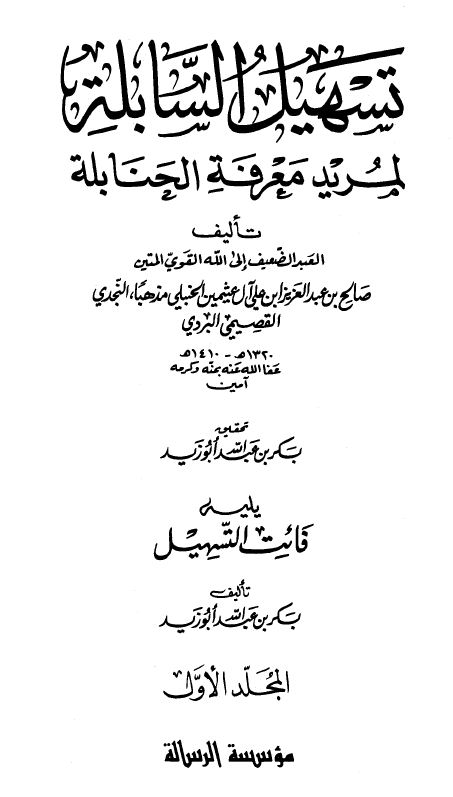 تسهيل السَّابلة
لمُريد مَعْرفَةِ الحَنَابلة
تأليف
العبد الضّعيف إلى الله القويّ المتين
صالح بن عبد العزيز ابن علي آل عثيمين الحنبلي مذهبًا، النّجدي
القصيمي البردي
١٣٢٠هـ - ١٤١٠هـ
عفا الله عنه بمنّه وكرمه
آمين
تحقيق
بَكر بن عَبد الله أبُو زَيد
يليه
فَائت التّسهيل
تأليف
بَكر بن عَبد الله أبُو زَيد
المجُلّد الأوّل
مؤسسة الرسالة